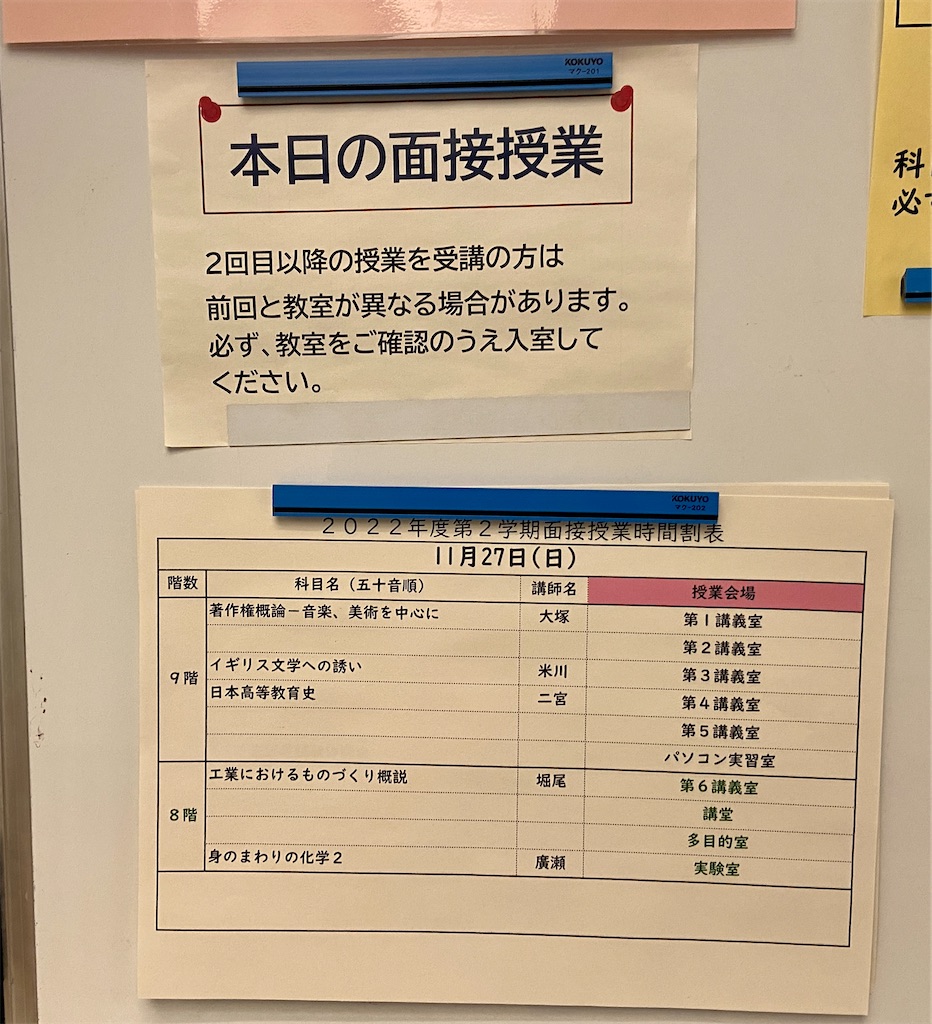 KOKUYO
マク-201
本日の面接授業
2回目以降の授業を受講の方は
前回と教室が異なる場合があります。
必ず、教室をご確認のうえ入室して
ください。
科
必
KOKUYO
マク-202
2022年度第2学期面接授業時間割表
11月27日(日)
階数 科目名（五十音順） 講師名 授業会場
著作権概論－音楽、美術を中心に 大塚 第1講義室
第2講義室
イギリス文学への誘い 米川 第3講義室
9階
日本高等教育史 二宮 第4講義室
第5講義室
パソコン実習室
工業におけるものづくり概説 堀尾 第6講義室
講堂
8階
多目的室
身のまわりの化学2 廣瀬 実験室